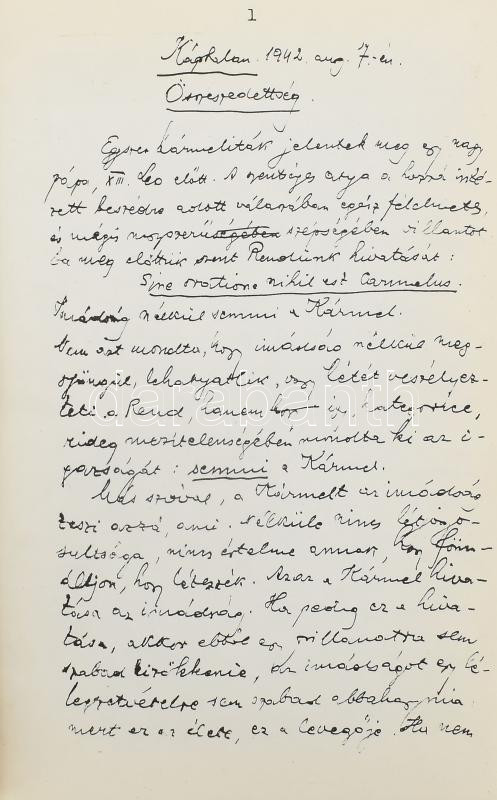 1
Káptalan. 1942. aug. 7.-én.
Összeszedettség.
Egyszer kármeliták jelentek meg egy nagy
pápa, XIII. Leo előtt. A szentséges atya a hozzá inté-
zett beszédre adott válaszában egész félelmetes,
és mégis nagyszerűségében szépségében villantot
ta meg előttük szent Rendünk hivatását:
Sine oratione nihil est Carmelus.
Imádság nélkül semmi a Kármel.
Nem azt mondta, hogy imádság nélkül meg-
gyöngül, lehanyatlik, vagy létét veszélyez-
teti a Rend, hanem így, kategorice,
rideg mezítelenségében mondta ki az i-
gazságát: semmi a Kármel.
Más szóval, a Kármelt az imádság
teszi azzá, ami. Nélküle nincs létjogo-
sultsága, nincs értelme annak, hogy
hogy létezzék. Azaz a Kármel hiva-
tása az imádság. Ha pedig ez a hiva-
tása, akkor ebből egy pillanatra sem
szabad kizökkenie, az imádságot egy lé-
legzetvételre sem szabad abbahagynia
mert ez az élete, ez a levegője. Ha nem
darabanth